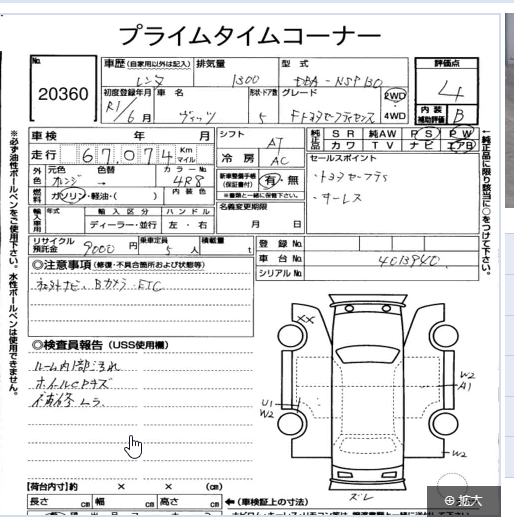 プライムタイムコーナー
No. 20360
車歴(自家用以外は記入) レンタ
排気量 1300
型式 DBA-NSP130
評価点 4
内装補助評価 B
初度登録年月 R1/6月
車名 ヴィッツ
形状・ドア数 5
グレード Fトヨタセーフティセンス
2WD
4WD
車検 年 月
走行 67,074 Km マイル
シフト AT
冷房 AC
純正品 SR 純AW PS PW
カワ TV ナビ エアB
セールスポイント
・トヨタセーフティS
外色 元色 オレンジ → 色替
カラーNo. 4R8
内装色
燃料 ガソリン・軽油・( )
新車整備手帳(保証書付) 有・無
※書類と一緒に保管下さい。
名義変更期限 月 日
輸入車用 年式 輸入区分 ハンドル
ディーラー・並行 左・右
リサイクル預託金 9000円
乗車定員 5人
積載量 t
登録No.
車台No. 4013940
シリアルNo.
◎注意事項(修復・不具合箇所および状態等)
社外ナビ、Bカメラ・ETC
◎検査員報告(USS使用欄)
ルーム内1部汚れ
ホイルCPキズ
補修ムラ.
XX
U1
W2
W2
A1
W2
スレ
【荷台内寸】約 × × (cm)
長さ cm 幅 cm 高さ cm ←(車検証上の寸法)
※必ず油性ボールペンをご使用下さい。水性ボールペンは使用できません。
←純正品に限り該当に○をつけて下さい。
拡大